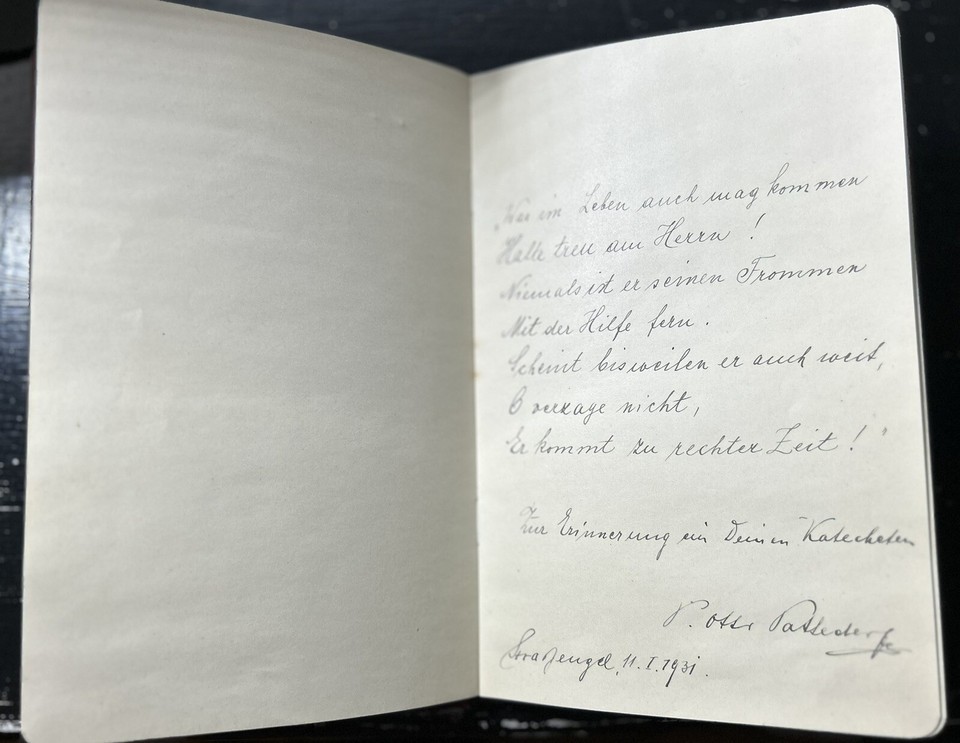 „Was im Leben auch mag kommen
Halte treu am Herrn !
Niemals ist er seinen Frommen
Mit der Hilfe fern .
Scheint bisweilen er auch weit,
O verzage nicht,
Er kommt zu rechter Zeit ! "
Zur Erinnerung an Deinen Katecheten
P. Otto
11. I. 1931.